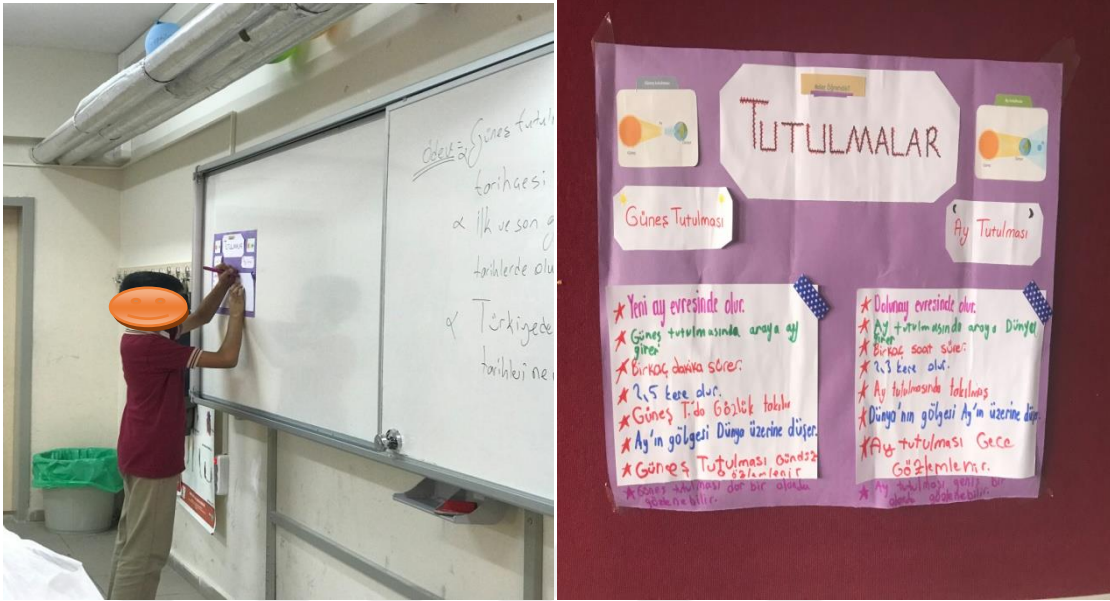 Ödev:
Güneş tutul
tarihçesi
ilk ve son g
tarihlerde olu
Türkiyede
tarihleri ne
TUTULMALAR
Güneş Tutulması
Ay Tutulması
Yeni ay evresinde olur.
Güneş tutulmasında araya ay
girer
Birkaç dakika sürer.
2,5 kere olur.
Güneş T.da Gözlük takılır
Ay'ın gölgesi Dünya üzerine düşer.
Güneş Tutulması Gündüz
gözlemlenir
Güneş tutulması dar bir alanda
gözlenebilir.
Dolunay evresinde olur.
Ay tutulmasında araya Dünya
girer
Birkaç saat sürer.
2,3 kere olur.
Ay tutulmasında takılmaz
Dünya'nın gölgesi Ay'ın üzerine düşer
Ay tutulması Gece
Gözlemlenir.
Ay tutulması geniş bir
alanda gözlenebilir.